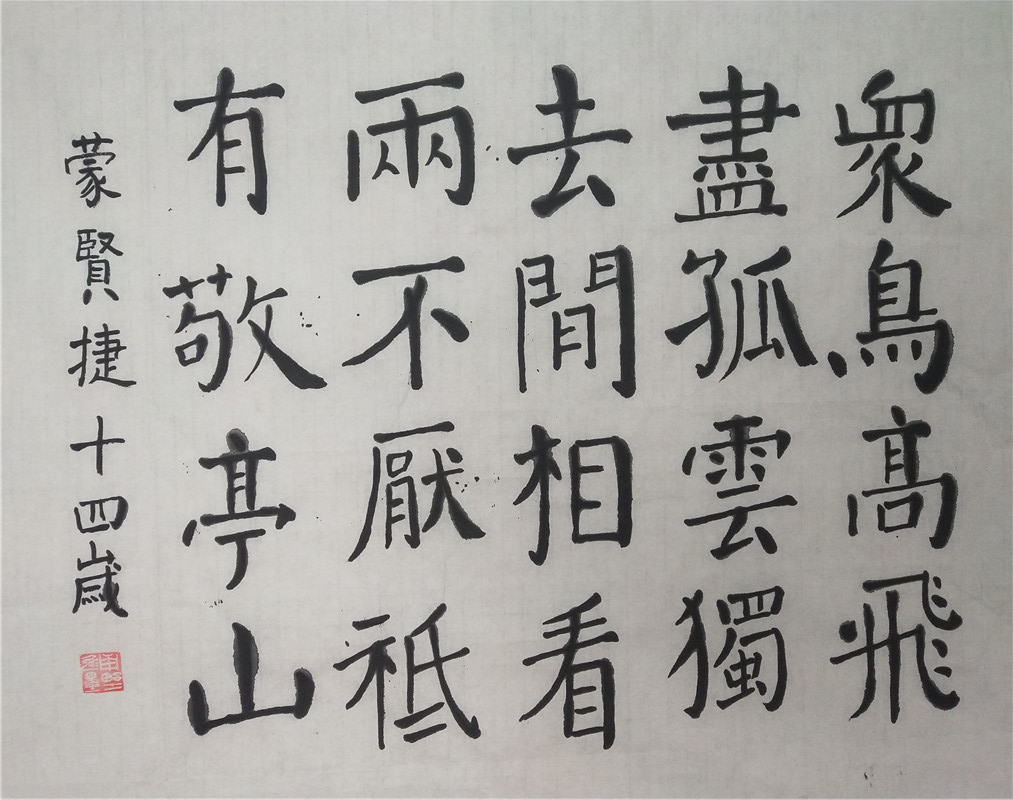 衆鳥髙飛
盡孤雲獨
去閒相看
兩不厭祗
有敬亭山
蒙賢捷十四歲